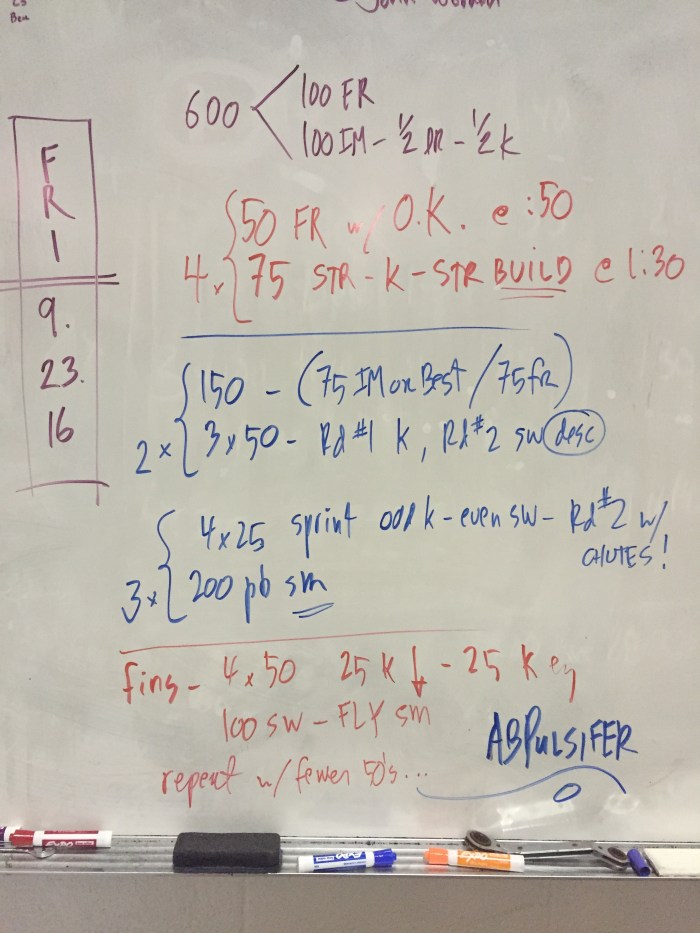 Ben
600 100 FR
100 IM - 1/2 DR - 1/2 K
FRI
9.
23.
16
4x 50 FR w/ O.K. @ :50
75 STR - K - STR BUILD @ 1:30
2x 150 - (75 IM or Best / 75 fr)
3x50 - Rd #1 k, Rd #2 sw desc
3x 4x25 sprint odd k - even sw - Rd #2 w/
CHUTES!
200 pb sm
fins - 4x50 25 K ↓ - 25 K ez
100 sw - FLY sm
repeat w/ fewer 50's...
ABPULSIFER
EXPO
EXPO
EXPO